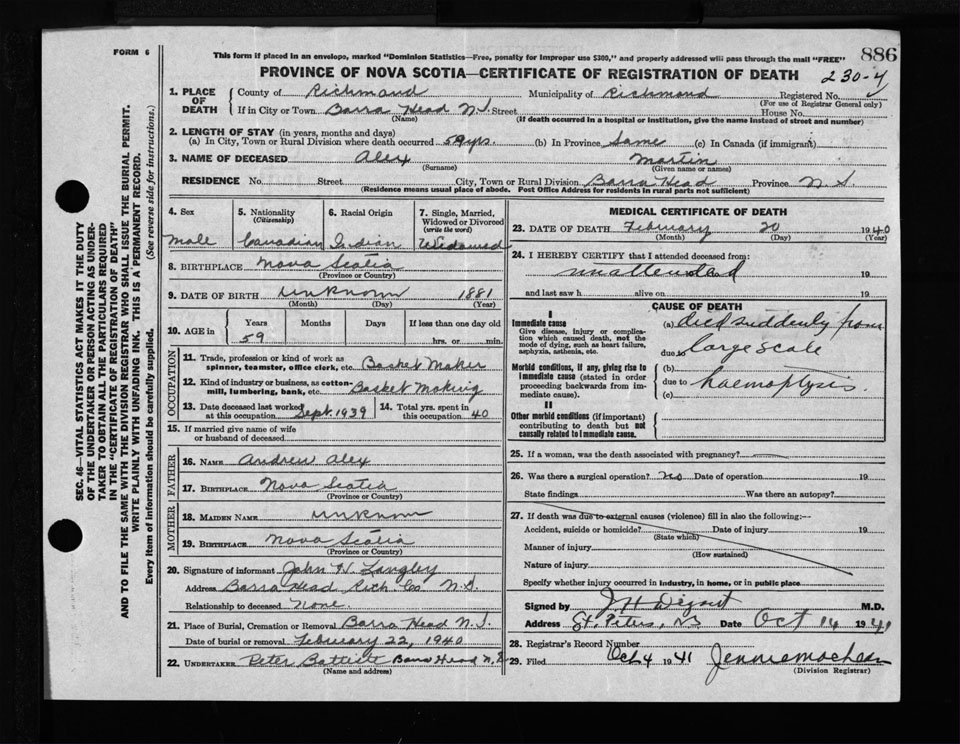 FORM 6
This form if placed in an envelope, marked "Dominion Statistics—Free, penalty for improper use $300," and properly addressed will pass through the mail "FREE"
886
PROVINCE OF NOVA SCOTIA—CERTIFICATE OF REGISTRATION OF DEATH
230-4
SEC. 46—VITAL STATISTICS ACT MAKES IT THE DUTY
OF THE UNDERTAKER OR PERSON ACTING AS UNDER-
TAKER TO OBTAIN ALL THE PARTICULARS REQUIRED
IN THE "CERTIFICATE OF REGISTRATION OF DEATH"
AND TO FILE THE SAME WITH THE DIVISION REGISTRAR WHO SHALL ISSUE THE BURIAL PERMIT.
WRITE PLAINLY WITH UNFADING INK. THIS IS A PERMANENT RECORD.
Every item of information should be carefully supplied. (See reverse side for instructions.)
1. PLACE OF DEATH
County of Richmond Municipality of Richmond Registered No.
(For use of Registrar General only)
If in City or Town Barra Head N.S. Street House No.
(Name) (If death occurred in a hospital or institution, give the name instead of street and number)
2. LENGTH OF STAY (in years, months and days)
(a) In City, Town or Rural Division where death occurred 59 yrs. (b) In Province Same (c) In Canada (if immigrant)
3. NAME OF DECEASED Alex Martin
(Surname) (Given name or names)
RESIDENCE No. Street City, Town or Rural Division Barra Head Province N.S.
(Residence means usual place of abode. Post Office Address for residents in rural parts not sufficient)
4. Sex 5. Nationality (Citizenship) 6. Racial Origin 7. Single, Married, Widowed or Divorced (write the word)
Male Canadian Indian Widowed
8. BIRTHPLACE Nova Scotia
(Province or Country)
9. DATE OF BIRTH unknown 1881
(Month) (Day) (Year)
10. AGE in Years Months Days If less than one day old
59 hrs. or min.
OCCUPATION
11. Trade, profession or kind of work as
spinner, teamster, office clerk, etc. Basket Maker
12. Kind of industry or business, as cotton-
mill, lumbering, bank, etc. Basket Making
13. Date deceased last worked at this occupation Sept. 1939 14. Total yrs. spent in this occupation 40
15. If married give name of wife
or husband of deceased
FATHER
16. NAME Andrew Alex
17. BIRTHPLACE Nova Scotia
(Province or Country)
MOTHER
18. MAIDEN NAME unknown
19. BIRTHPLACE Nova Scotia
(Province or Country)
20. Signature of informant John N. Langley
Address Barra Head Rich Co N.S.
Relationship to deceased None.
21. Place of Burial, Cremation or Removal Barra Head N.S.
Date of burial or removal February 22, 1940
22. UNDERTAKER Peter Battiste Barra Head N.S.
(Name and address)
MEDICAL CERTIFICATE OF DEATH
23. DATE OF DEATH February 20 1940
(Month) (Day) (Year)
24. I HEREBY CERTIFY that I attended deceased from:
unattended 19
and last saw h alive on 19
CAUSE OF DEATH
I
Immediate cause
Give disease, injury or complica-
tion which caused death, not the
mode of dying, such as heart failure,
asphyxia, asthenia, etc.
(a) died suddenly from
due to large scale
Morbid conditions, if any, giving rise to
immediate cause (stated in order
proceeding backwards from im-
mediate cause).
(b)
due to haemoptysis.
(c)
II
Other morbid conditions (if important)
contributing to death but not
causally related to immediate cause.
25. If a woman, was the death associated with pregnancy?
26. Was there a surgical operation? no Date of operation 19
State findings Was there an autopsy?
27. If death was due to external causes (violence) fill in also the following:—
Accident, suicide or homicide? Date of injury 19
(State which)
Manner of injury
(How sustained)
Nature of injury
Specify whether injury occurred in industry, in home, or in public place
Signed by M.D.
Address St. Peters, NS Date Oct 14 1941
28. Registrar's Record Number
29. Filed Oct 4 1941
(Division Registrar)